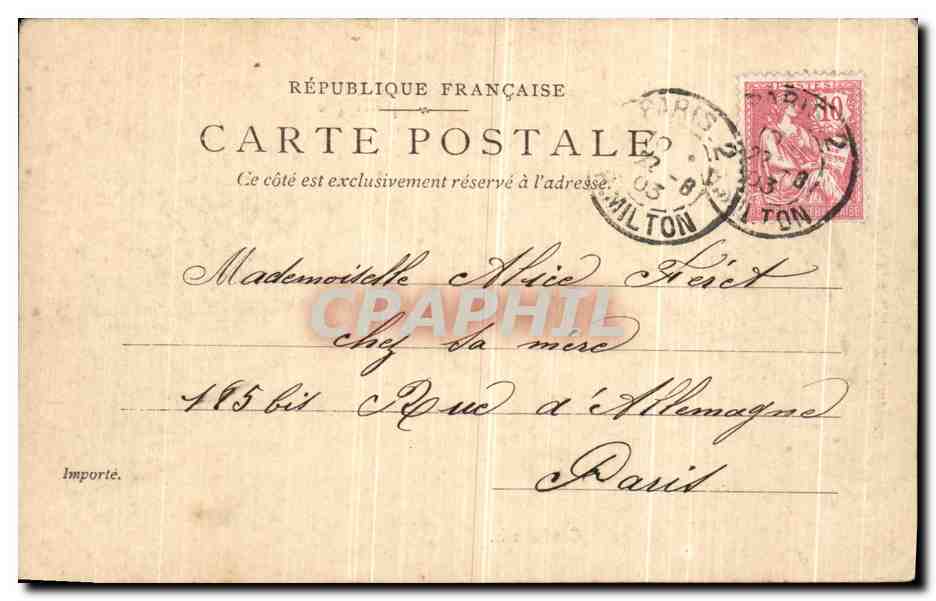 RÉPUBLIQUE FRANÇAISE
CARTE POSTALE
Ce côté est exclusivement réservé à l'adresse.
PARIS. 2
22 -8
03
R. MILTON
POSTES
10
PARIS 2
03
MILTON
Mademoiselle Alice Féret
CPAPHIL
chez sa mère
195 bis Rue d'Allemagne
Paris
Importé.